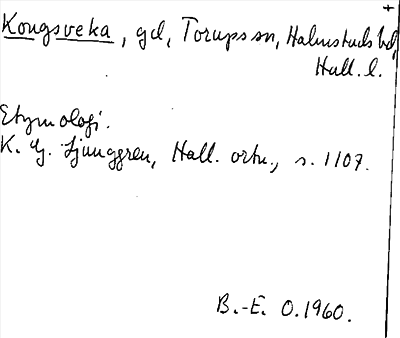 Kongsveka, gd, Torups sn, Halmstads hd,
Hall. l.
Etymologi.
K. G. Ljunggren, Hall. ortn., s. 1107.
B.-E. O. 1960.